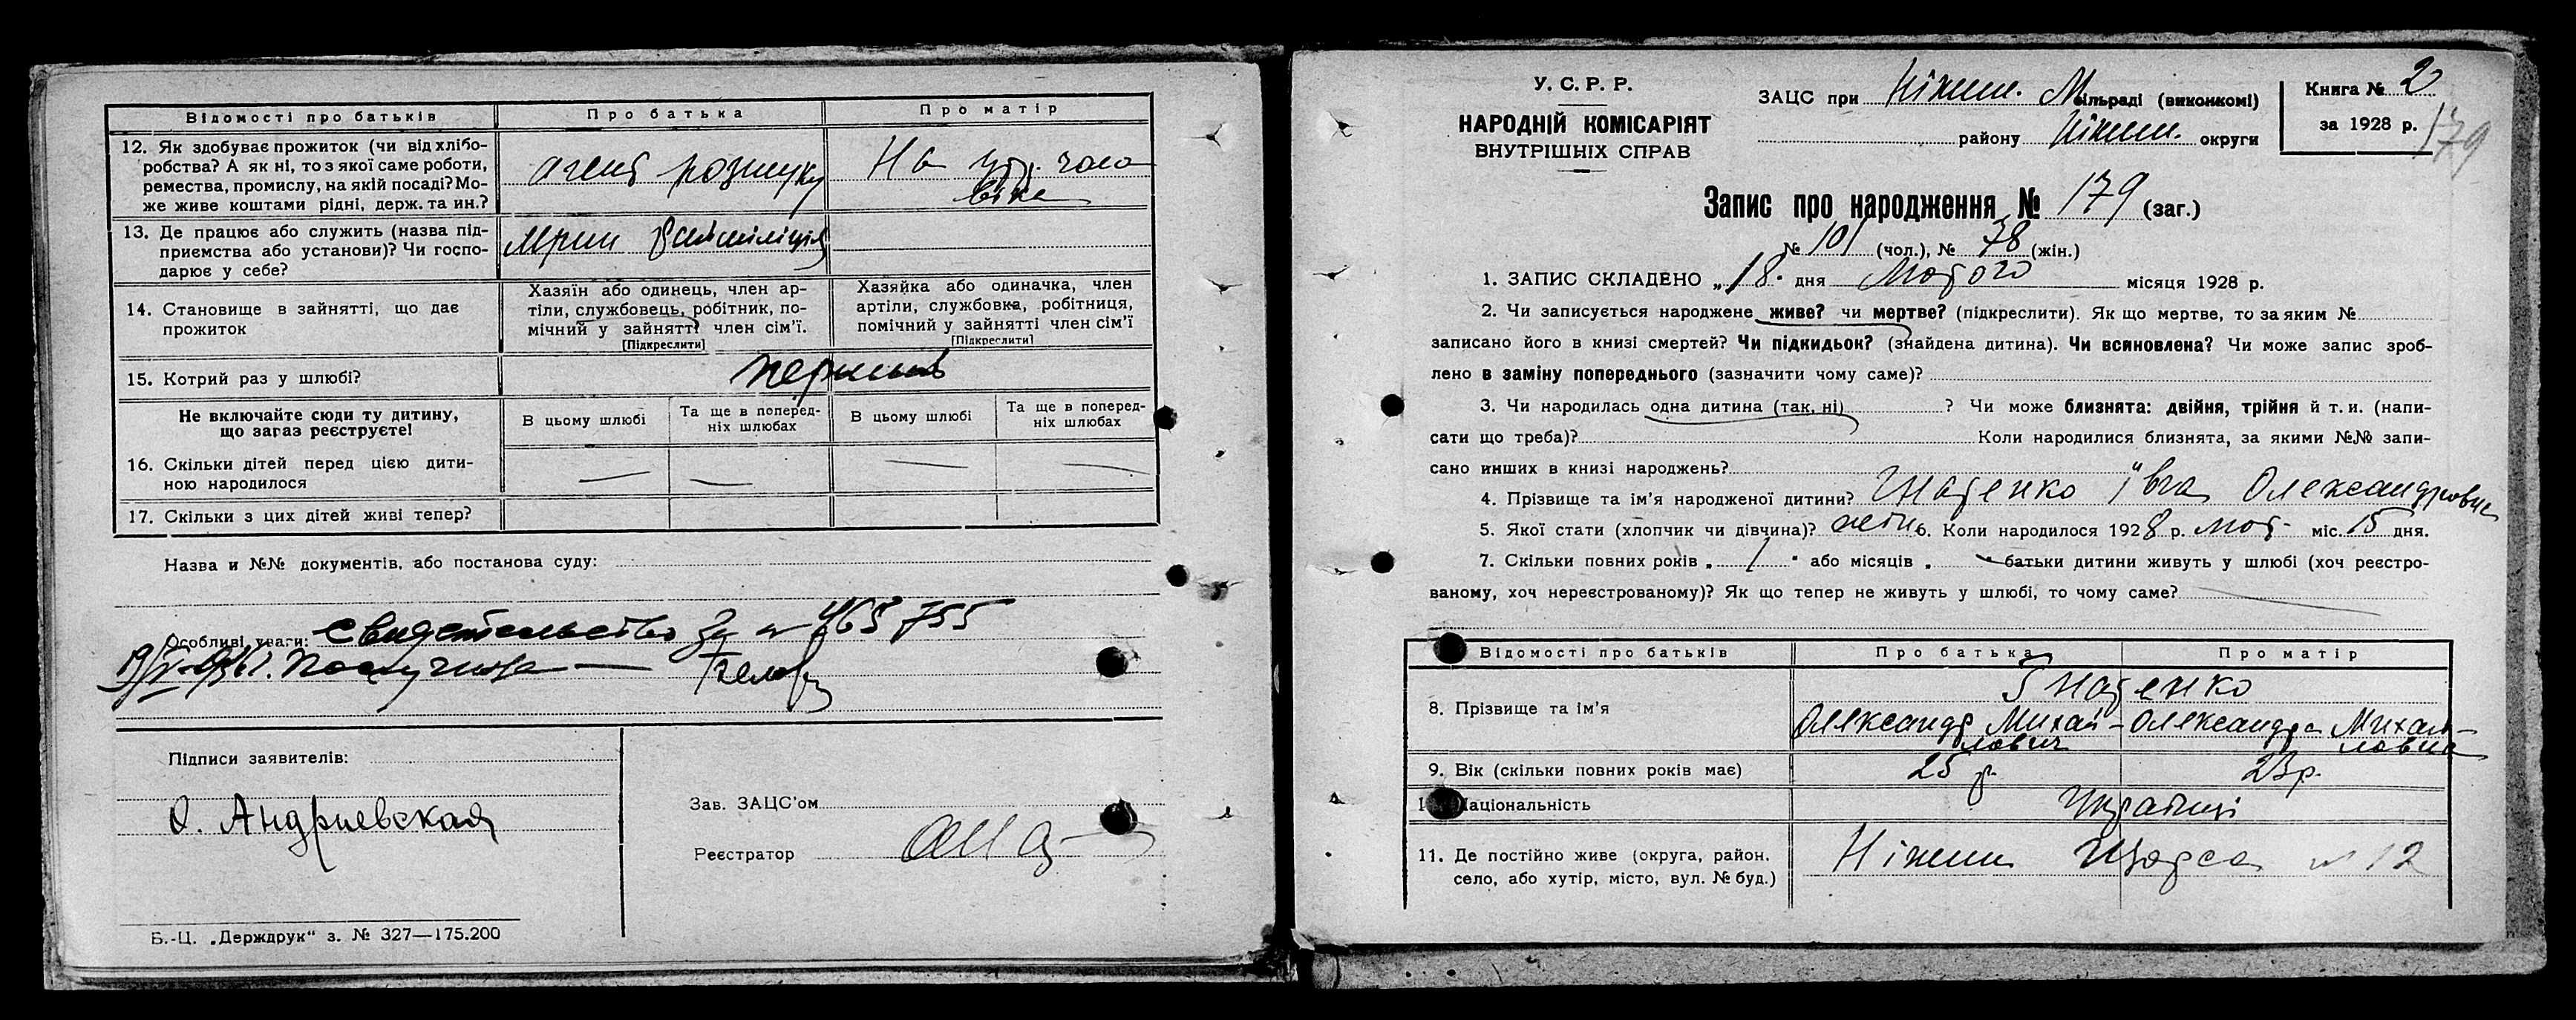 Відомості про батьків Про батька Про матір
12. Як здобуває прожиток (чи від хлібо-
робства? А як ні, то з якої саме роботи,
ремества, промислу, на якій посаді? Мо-
же живе коштами рідні, держ. та ин.?
агент розшуку
На утр. чоло
віка
13. Де працює або служить (назва під-
приємства або установи)? Чи госпо-
дарює у себе?
14. Становище в зайнятті, що дає
прожиток
Хазяїн або одинець, член ар-
тіли, службовець, робітник, по-
мічний у зайнятті член сім'ї.
[Підкреслити]
Хазяйка або одиначка, член
артіли, службовка, робітниця,
помічний у зайнятті член сім'ї
[Підкреслити]
15. Котрий раз у шлюбі?
Не включайте сюди ту дитину,
що загаз реєструєте!
В цьому шлюбі
Та ще в поперед-
ніх шлюбах
В цьому шлюбі
Та ще в поперед-
ніх шлюбах
16. Скільки дітей перед цією дити-
ною народилося
17. Скільки з цих дітей живі тепер?
Назва и №№ документів, або постанова суду:
Особливі уваги: свидетельство № 465755
получила
Підписи заявителів:
О. Андриевская
Зав. ЗАЦС'ом
Реєстратор
Б.-Ц. „Держдрук" з. № 327—175.200
У. С. Р. Р.
НАРОДНІЙ КОМІСАРІЯТ
ВНУТРІШНІХ СПРАВ
ЗАЦС при Ніжин. М сільраді (виконкомі)
району Ніжин. округи
Книга № 2
за 1928 р.
179
Запис про народження № 179 (заг.)
№ 101 (чол.), № 78 (жін.)
1. ЗАПИС СКЛАДЕНО „18" дня Лютого місяця 1928 р.
2. Чи записується народжене живе? чи мертве? (підкреслити). Як що мертве, то за яким №
записано його в книзі смертей? Чи підкидьок? (знайдена дитина). Чи всиновлена? Чи може запис зроб-
лено в заміну попереднього (зазначити чому саме)?
3. Чи народилась одна дитина (так, ні) ? Чи може близнята: двійня, трійня й т. и. (напи-
сати що треба)? Коли народилися близнята, за якими №№ запи-
сано инших в книзі народжень?
4. Прізвище та ім'я народженої дитини? Гнатенко Івга Олександровна
5. Якої статі (хлопчик чи дівчина)? жін. 6. Коли народилося 1928 р. лют. міс. 15 дня.
7. Скільки повних років „ 1 " або місяців „ " батьки дитини живуть у шлюбі (хоч реєстро-
ваному, хоч нереєстрованому)? Як що тепер не живуть у шлюбі, то чому саме?
Відомості про батьків Про батька Про матір
8. Прізвище та ім'я
Гнатенко
Олександр Михай-
лович
Олександра Михай-
ловна
9. Вік (скільки повних років має) 25 р. 23 р.
Національність Українці
11. Де постійно живе (округа, район,
село, або хутір, місто, вул. № буд.)
Ніжин Щорса № 12